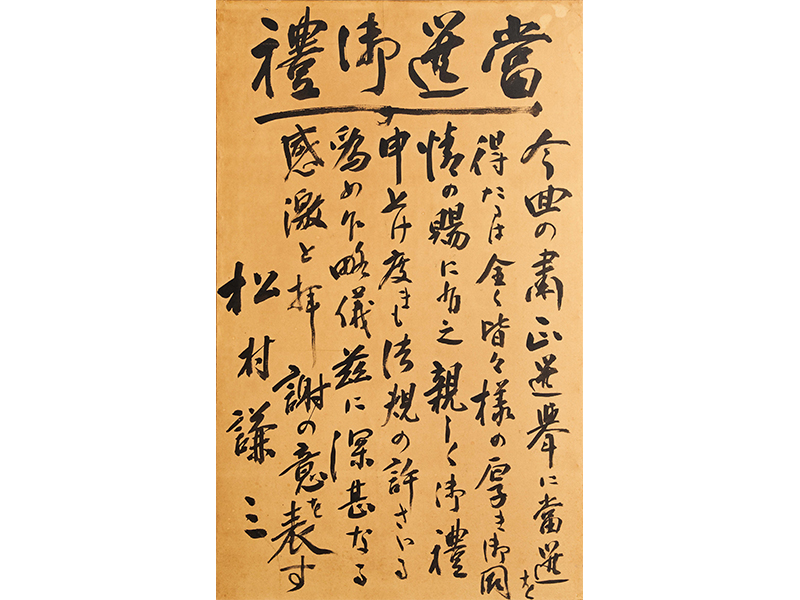 當選御禮
今回の粛正選擧に當選を
得たるは全く皆々様の厚き御同
情の賜に有之親しく御禮
申上け度きも法規の許さゝる
爲め乍略儀茲に深甚なる
感激と拝謝の意を表す
松村謙三